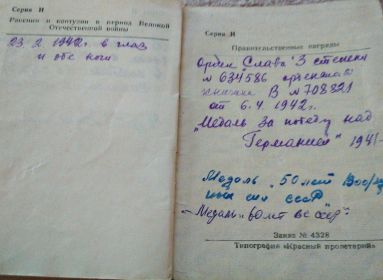 Серия И
Ранения и контузии в период Великой
Отечественной войны
23 2 1942 г в глаз
и обе ноги
Серия И
Правительственные награды
Орден Слава 3 степени
№ 634586 орденская
книжка В № 708821
от 6.4 1942г.
"Медаль За победу над
Германией" 194
Медаль „50 лет
сил СССР
Медаль
Заказ № 4328
Типография «Красный пролетарий»